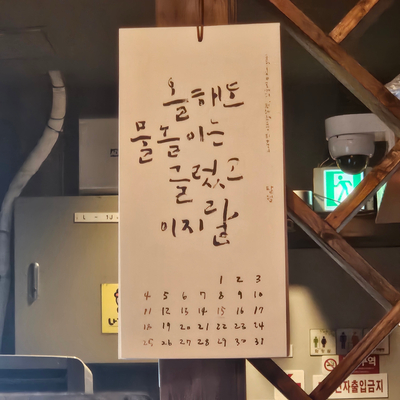 올해도
물놀이는
글렀고
이지랄
팔월
1 2 3
4 5 6 7 8 9 10
11 12 13 14 15 16 17
18 19 20 21 22 23 24
25 26 27 28 29 30 31
구역
자출입금지